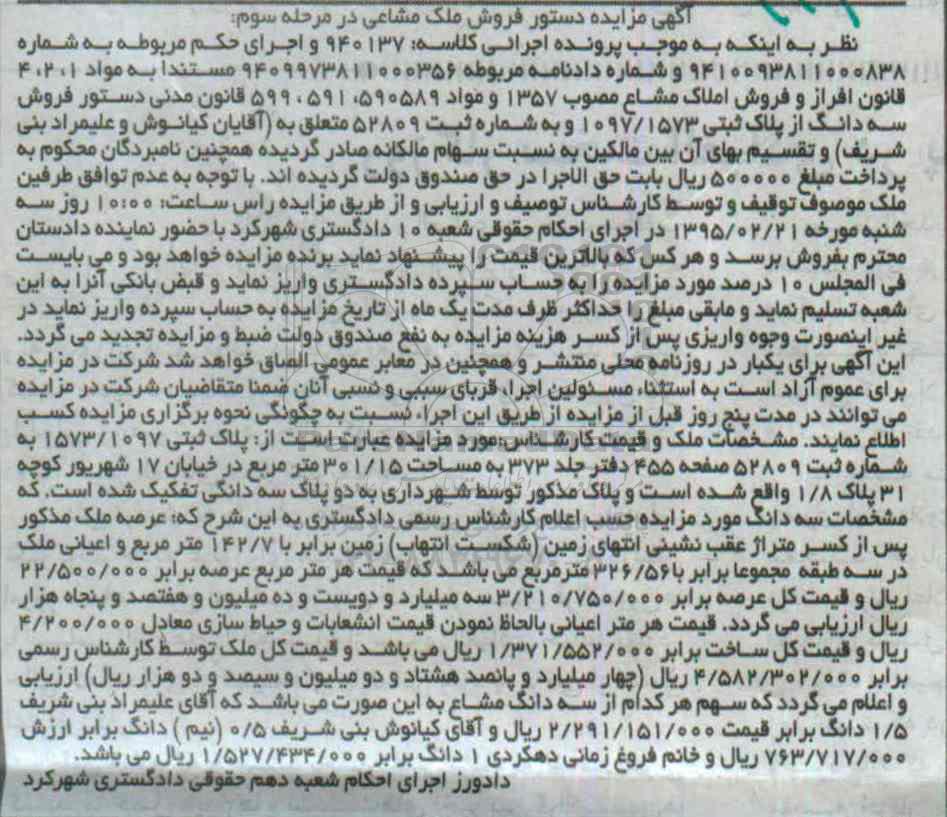 آگهی مزایده دستور فروش ملک مشاعی در مرحله سوم:
نظر به اینکه به موجب پرونده اجرائی کلاسه: ۹۴۰۱۳۷ و اجرای حکم مربوطه به شماره
۹۴۱۰۰۹۳۸۱۱۰۰۰۸۳۸ و شماره دادنامه مربوطه ۹۴۰۹۹۷۳۸۱۱۰۰۰۳۵۶ مستندا به مواد ۱، ۲، ۴
قانون افراز و فروش املاک مشاع مصوب ۱۳۵۷ و مواد ۵۸۹، ۵۹۰، ۵۹۱، ۵۹۹ قانون مدنی دستور فروش
سه دانگ از پلاک ثبتی ۱۰۹۷/۱۵۷۳ و به شماره ثبت ۵۲۸۰۹ متعلق به (آقایان کیانوش و علیمراد بنی
شریف) و تقسیم بهای آن بین مالکین به نسبت سهام مالکانه صادر گردیده همچنین نامبردگان محکوم به
پرداخت مبلغ ۵۰۰۰۰۰ ریال بابت حق الاجرا در حق صندوق دولت گردیده اند. با توجه به عدم توافق طرفین
ملک موصوف توقیف و توسط کارشناس توصیف و ارزیابی و از طریق مزایده راس ساعت: ۱۰:۰۰ روز سه
شنبه مورخه ۱۳۹۵/۰۲/۲۱ در اجرای احکام حقوقی شعبه ۱۰ دادگستری شهرکرد با حضور نماینده دادستان
محترم بفروش برسد و هر کس که بالاترین قیمت را پیشنهاد نماید برنده مزایده خواهد بود و می بایست
فی المجلس ۱۰ درصد مورد مزایده را به حساب سپرده دادگستری واریز نماید و قبض بانکی آنرا به این
شعبه تسلیم نماید و مابقی مبلغ را حداکثر ظرف مدت یک ماه از تاریخ مزایده به حساب سپرده واریز نماید در
غیر اینصورت وجوه واریزی پس از کسر هزینه مزایده به نفع صندوق دولت ضبط و مزایده تجدید می گردد.
این آگهی برای یکبار در روزنامه محلی منتشر و همچنین در معابر عمومی الصاق خواهد شد شرکت در مزایده
برای عموم آزاد است به استثناء مسئولین اجرا، قربای سببی و نسبی آنان ضمنا متقاضیان شرکت در مزایده
می توانند در مدت پنج روز قبل از مزایده از طریق این اجراء نسبت به چگونگی نحوه برگزاری مزایده کسب
اطلاع نمایند. مشخصات ملک و قیمت کارشناس: مورد مزایده عبارت است از: پلاک ثبتی ۱۵۷۳/۱۰۹۷ به
شماره ثبت ۵۲۸۰۹ صفحه ۴۵۵ دفتر جلد ۳۷۳ به مساحت ۳۰۱/۱۵ متر مربع در خیابان ۱۷ شهریور کوچه
۳۱ پلاک ۱/۸ واقع شده است و پلاک مذکور توسط شهرداری به دو پلاک سه دانگی تفکیک شده است. که
مشخصات سه دانگ مورد مزایده حسب اعلام کارشناس رسمی دادگستری به این شرح که: عرصه ملک مذکور
پس از کسر متراژ عقب نشینی انتهای زمین (شکست انتهاب) زمین برابر با ۱۴۲/۷ متر مربع و اعیانی ملک
در سه طبقه مجموعا برابر با ۳۲۶/۵۶ مترمربع می باشد که قیمت هر متر مربع عرصه برابر ۲۲/۵۰۰/۰۰۰
ریال و قیمت کل عرصه برابر ۳/۲۱۰/۷۵۰/۰۰۰ سه میلیارد و دویست و ده میلیون و هفتصد و پنجاه هزار
ریال ارزیابی می گردد. قیمت هر متر اعیانی بالحاظ نمودن قیمت انشعابات و حیاط سازی معادل ۴/۲۰۰/۰۰۰
ریال و قیمت کل ساخت برابر ۱/۳۷۱/۵۵۲/۰۰۰ ریال می باشد و قیمت کل ملک توسط کارشناس رسمی
برابر ۴/۵۸۲/۳۰۲/۰۰۰ ریال (چهار میلیارد و پانصد هشتاد و دو میلیون و سیصد و دو هزار ریال) ارزیابی
و اعلام می گردد که سهم هر کدام از سه دانگ مشاع به این صورت می باشد که آقای علیمراد بنی شریف
۱/۵ دانگ برابر قیمت ۲/۲۹۱/۱۵۱/۰۰۰ ریال و آقای کیانوش بنی شریف ۰/۵ (نیم) دانگ برابر ارزش
۷۶۳/۷۱۷/۰۰۰ ریال و خانم فروغ زمانی دهکردی ۱ دانگ برابر ۱/۵۲۷/۴۳۴/۰۰۰ ریال می باشد.
دادورز اجرای احکام شعبه دهم حقوقی دادگستری شهرکرد